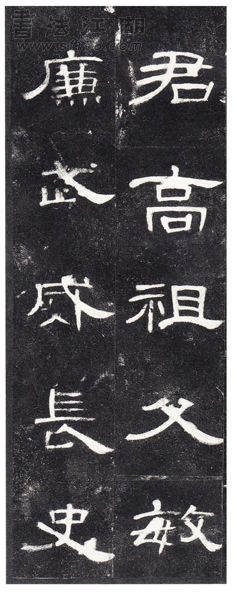 君高祖父敏
廉武威長史
書法江湖